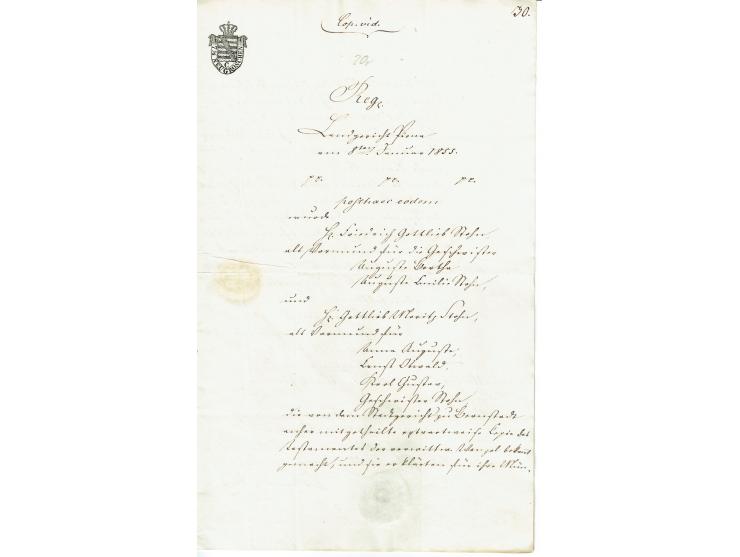 30.
Cop. vid.
20,
NEUGROSCHEN
Reg.
Landgericht Pirna
am 8ten Januar 1855.
pp. pp. pp.
posthaec eodem
wurde
Hr. Friedrich Gottlieb Hohn
als Vormund für die Geschwister
Auguste Bertha
Auguste Emilie Hohn,
und
Hr. Gottlieb Moritz Hohn,
als Vormund für
Anna Auguste,
Ernst Oswald,
Karl Gustav,
Geschwister Hohn
die von dem Stadtgericht zu Bernstadt
anher mitgetheilte extractweise Copie des
Testamentes der verwittw. Wenzel bekannt
gemacht, und sie erklärten für ihre Mün-